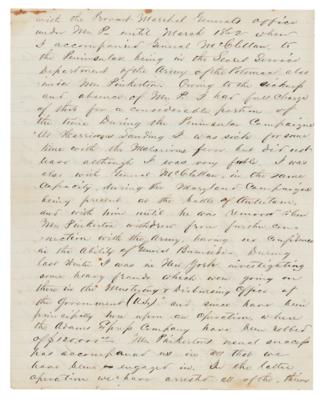 with the Provost Marshal Generals office
under Mr P. until March 1862 when
I accompanied General McClellan to
the Peninsular being in the Secret Service
Department of the Army of the Potomac also
under Mr Pinkerton. Owing to the sickness
and absence of Mr P. I had full charge
of it for a considerable portion of
the time During the Peninsular Campaign
At Harrisons Landing I was sick for some
time with the Malarious fever but did not
leave although I was very feeble I was
also with General McClellan in the same
Capacity, during the Maryland Campaign
being present at the battle of Antietam
and with him until he was removed when
Mr Pinkerton withdrew from further con-
nection with the Army, having no confidence
in the ability of General Burnside. During
last Winter I was in New York investigating
some heavy frauds which were going on
there in the Mustering & Disbursing Office of
the Government and since have been
principally here upon an operation where
the Adams Express Company have been robbed
of Mr Pinkertons usual success
has accompanied us in all that we
have been engaged in. In the latter
operation we have arrested all of the thieves